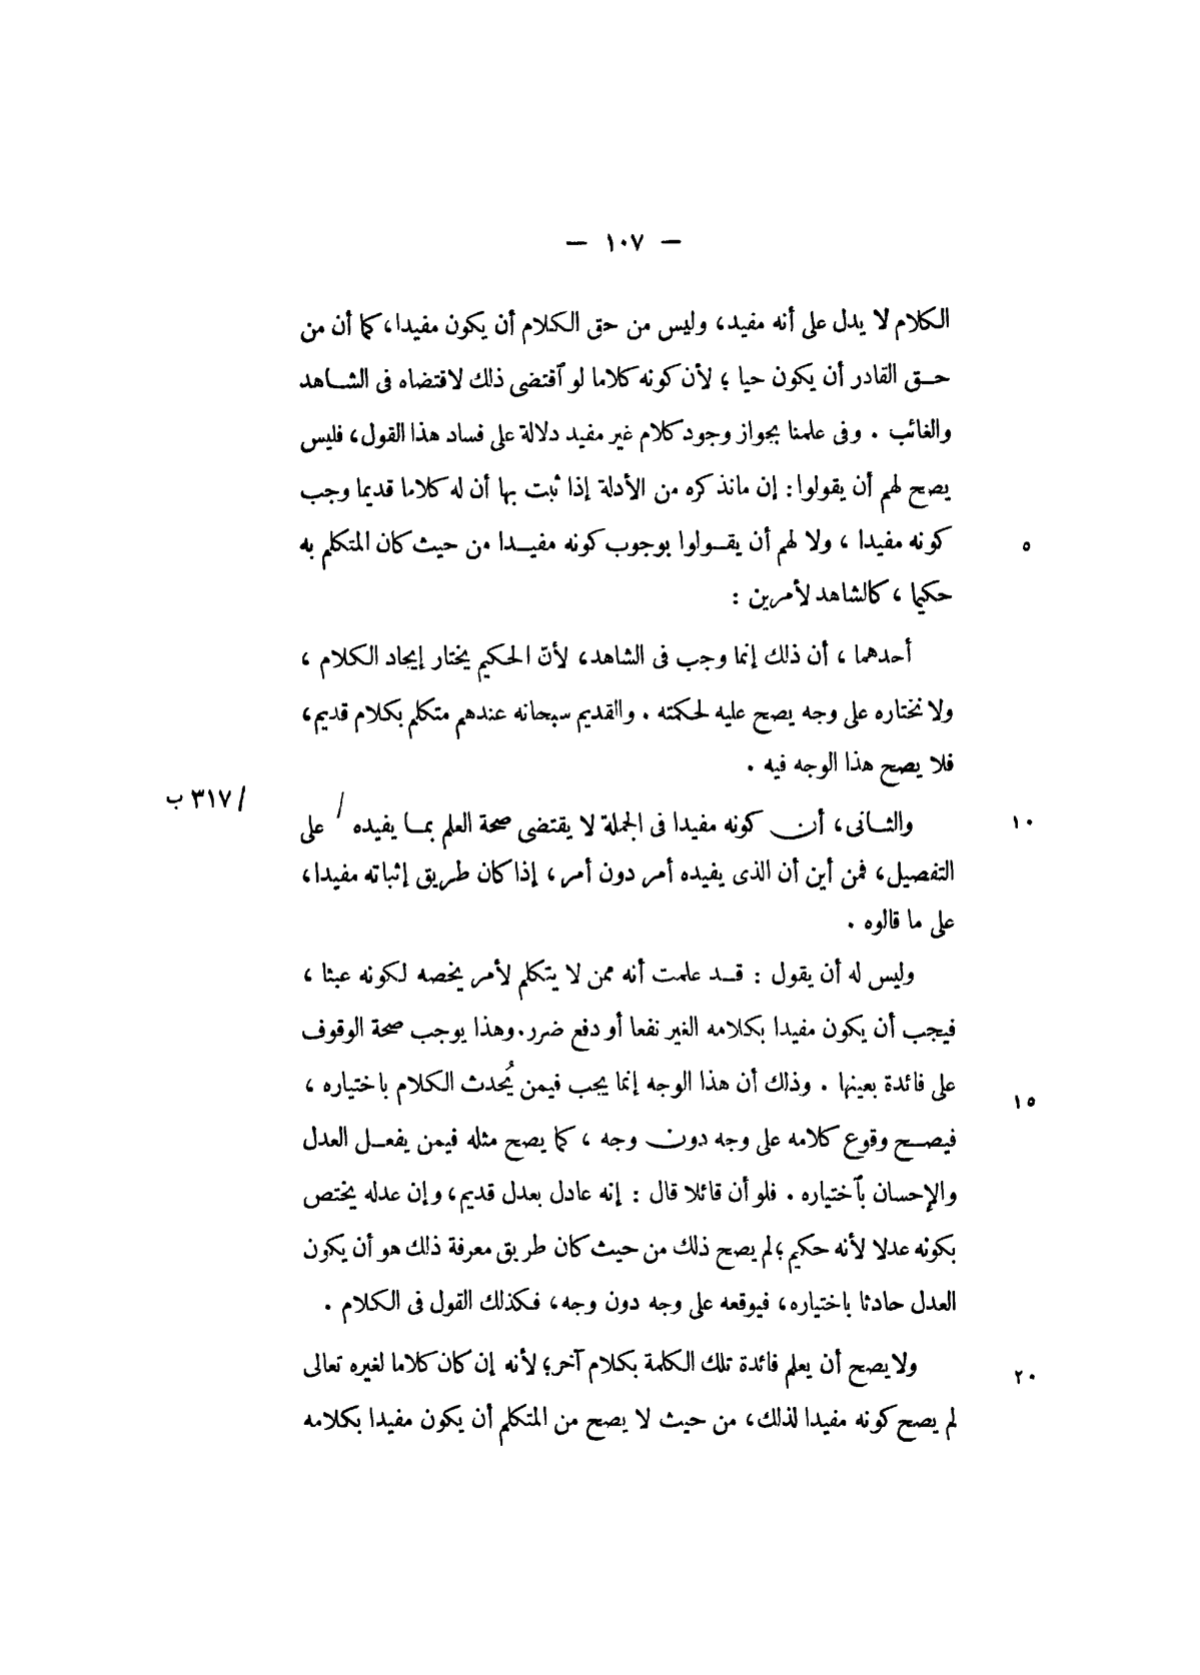 — ١٠٧ —
الكلام لا يدل على أنه مفيد، وليس من حق الكلام أن يكون مفيدا، كما أن من
حق القادر أن يكون حيا ؛ لأن كونه كلاما لو ٱقتضى ذلك لاقتضاه فى الشاهد
والغائب . وفى علمنا بجواز وجود كلام غير مفيد دلالة على فساد هذا القول، فليس
يصح لهم أن يقولوا: إن مانذكره من الأدلة إذا ثبت بها أن له كلاما قديما وجب
كونه مفيدا ، ولا لهم أن يقولوا بوجوب كونه مفيدا من حيث كان المتكلم به
٥
حكيما ، كالشاهد لأمرين :
أحدهما ، أن ذلك إنما وجب فى الشاهد، لأنّ الحكيم يختار إيجاد الكلام ،
ولا نختاره على وجه يصح عليه لحكمته . والقديم سبحانه عندهم متكلم بكلام قديم،
فلا يصح هذا الوجه فيه .
/٣١٧ ب
والثانى، أن كونه مفيدا فى الجملة لا يقتضى صحة العلم بما يفيده / على
١٠
التفصيل، فمن أين أن الذى يفيده أمر دون أمر، إذا كان طريق إثباته مفيدا،
على ما قالوه .
وليس له أن يقول : قد علمت أنه ممن لا يتكلم لأمر يخصه لكونه عبثا ،
فيجب أن يكون مفيدا بكلامه الغير نفعا أو دفع ضرر. وهذا يوجب صحة الوقوف
على فائدة بعينها . وذلك أن هذا الوجه إنما يجب فيمن يُحدث الكلام باختياره ،
١٥
فيصح وقوع كلامه على وجه دون وجه ، كما يصح مثله فيمن يفعل العدل
والإحسان بٱختياره . فلو أن قائلا قال : إنه عادل بعدل قديم، وإن عدله يختص
بكونه عدلا لأنه حكيم ؛ لم يصح ذلك من حيث كان طريق معرفة ذلك هو أن يكون
العدل حادثا باختياره، فيوقعه على وجه دون وجه، فكذلك القول فى الكلام .
ولا يصح أن يعلم فائدة تلك الكلمة بكلام آخر؛ لأنه إن كان كلاما لغيره تعالى
٢٠
لم يصح كونه مفيدا لذلك، من حيث لا يصح من المتكلم أن يكون مفيدا بكلامه